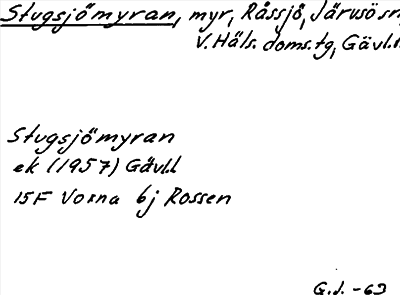 Stugsjömyran, myr, Råssjö, Järvsö sn,
V. Häls. doms. tg, Gävl.l.
Stugsjömyran
ek (1957) Gävl.l
15F Voxna 6j Rossen
G.J. -63